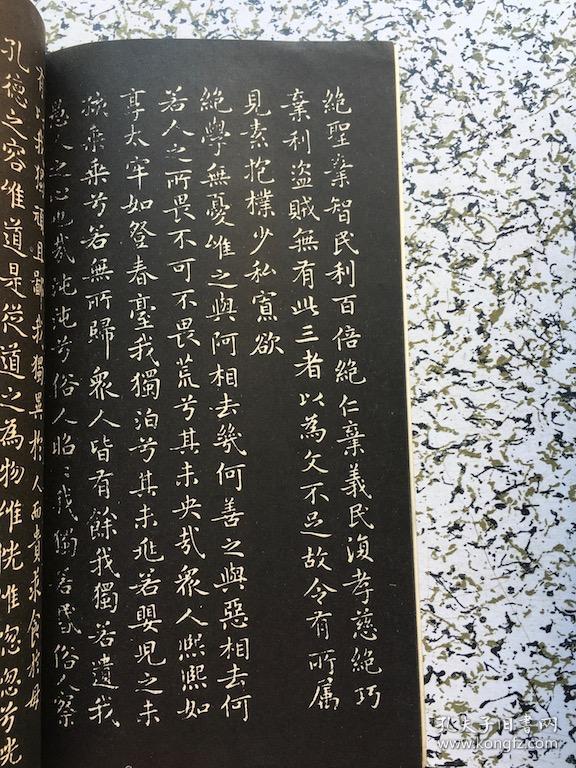 絶聖棄智民利百倍絶仁棄義民復孝慈絶巧
棄利盜賊無有此三者以為文不足故令有所属
見素抱樸少私寡欲
絶學無憂唯之與阿相去幾何善之與惡相去何
若人之所畏不可不畏荒兮其未央哉衆人熙熙如
享太牢如登春臺我獨泊兮其未兆若嬰児之未
孩乘乘兮若無所歸衆人皆有餘我獨若遺我
愚人之心也哉沌沌兮俗人昭〻我獨若昏俗人察
我獨頑且鄙我獨異於人而貴求食於母
孔德之容唯道是從道之為物唯恍唯忽忽兮恍
孔夫子旧书网
www.kongfz.com